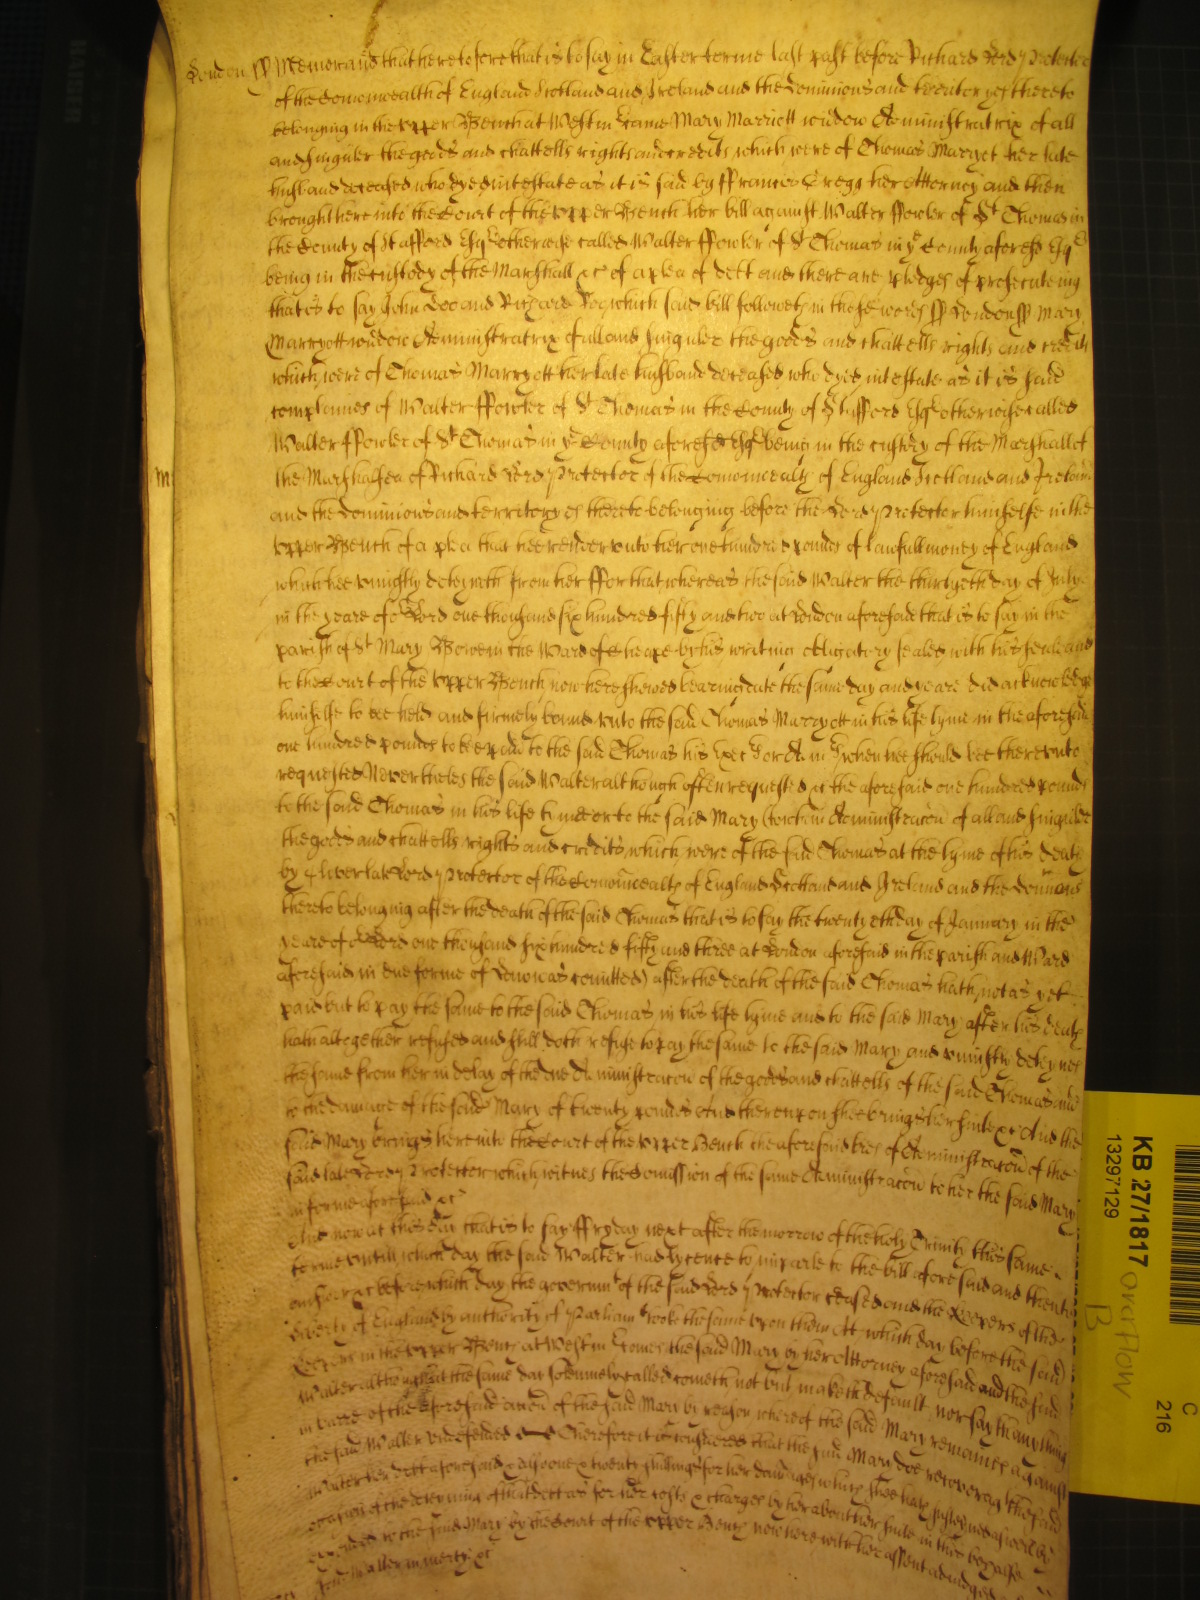 London ss Memorand that heretofore that is to say in Easter terme last past before Richard Lord Protector
of the Comonwealth of England Scotland and Ireland and the Dominions and territoryes thereto
belonging in the upper Bench at Westm came Mary Marriott widow Administratrix of all
and singuler the goods and chattells rights and credits which were of Thomas Marryot her late
husband deceased who dyed intestate as it is said by ffrancis Gregg her Attorney and then
brought here into the Court of the upper Bench her bill against Walter ffowler of St Thomas in
the County of Stafford Esqr otherwise called Walter ffowler of St Thomas in ye County aforesd Esqr
being in the custody of the Marshall &c of a plea of debt and there are pledges of prosecuteing
that is to say John Doo and Richard Roo which said bill followeth in these words ss London ss Mary
Marryott widow Administratrix of all and singuler the goods and chattells rights and credits
which were of Thomas Marryott her late husband deceased who dyed intestate as it is said
complaines of Walter ffowler of St Thomas in the County of Stafford Esqr otherwise called
Walter ffowler of St Thomas in ye County aforesd Esqr being in the custody of the Marshall of
m the Marshalsea of Richard Lord Protector of the Comonwealth of England Scotland and Ireland
and the Dominions and territoryes thereto belonging before the Lord Protector himselfe in the
upper Bench of a plea that hee render unto her one hundred pounds of lawfull money of England
which hee uniustly deteyneth from her ffor that whereas the said Walter the thirtyeth day of July
in the yeare of or Lord one thousand six hundred fifty and two at London aforesaid that is to say in the
parish of St Mary Bowe in the Ward of Cheape by his writing obligatory sealed with his seale and
to the Court of the upper Bench now here shewed beareing date the same day and yeare did acknowledge
himselfe to bee held and firmely bound unto the said Thomas Marryott in his life tyme in the aforesaid
one hundred pounds to bee paid to the said Thomas his Execrs or Admrs when hee should bee thereunto
requested Neverthelesse the said Walter although often requested &c the aforesaid one hundred pounds
to the said Thomas in his life time or to the said Mary (to whom Administracon of all and singuler
the goods and chattells rights and credits which were of the said Thomas at the tyme of his death
by Oliver late Lord Protector of the Comonwealth of England Scotland and Ireland and the Dominions
thereto belonging after the death of the said Thomas that is to say the twentyeth day of January in the
yeare of or Lord one thousand six hundred fifty and three at London aforesaid in the parish and Ward
aforesaid in due forme of Law was comitted) after the death of the said Thomas hath not as yet
paid but to pay the same to the said Thomas in his life tyme and to the said Mary after his death
hath altogether refused and still doth refuse to pay the same to the said Mary and uniustly deteynes
the same from her in delay of the due Administracon of the goods and chattells of the said Thomas and
to the damage of the said Mary of twenty pounds And thereupon shee brings her suite &c And the
said Mary brings here into the Court of the upper Bench the aforesaid lres of Administracon of the
said late Lord Protector which witnes the Comission of the same Administracon to her the said Mary
in forme aforesaid &c
And now at this day that is to say ffryday next after the morrow of the holy Trinity this same
terme untill which day the said Walter had lycence to imparle to the bill aforesaid and then to
answer &c before which day the governmt of the said Lord Protector ceased and the Keepers of the
liberty of England by authority of Parliamt tooke the same upon them Att which day before the said
Keepers in the upper Bench at Westm comes the said Mary by her Attorney aforesaid and the said
Walter although at the same day solemnely called cometh not but maketh default nor say th any thing
in barre of the aforesaid accon of the said Mary by reason whereof the said Mary remaines against
the said Walter undefended Therefore it is considered that the said Mary doe recover ag the said
Walter her debt aforesaid & also twenty shillings for her damages which shee hath susteyned aswell by
occasion of the deteyning of that debt as for her costs & charges by her about her suite in this behalfe
to the said Mary by the Court of the upper Bench now here with her assent adiudged
said Walter in mercy &c
KB 27/1817 overflow
13297129
B
C
216